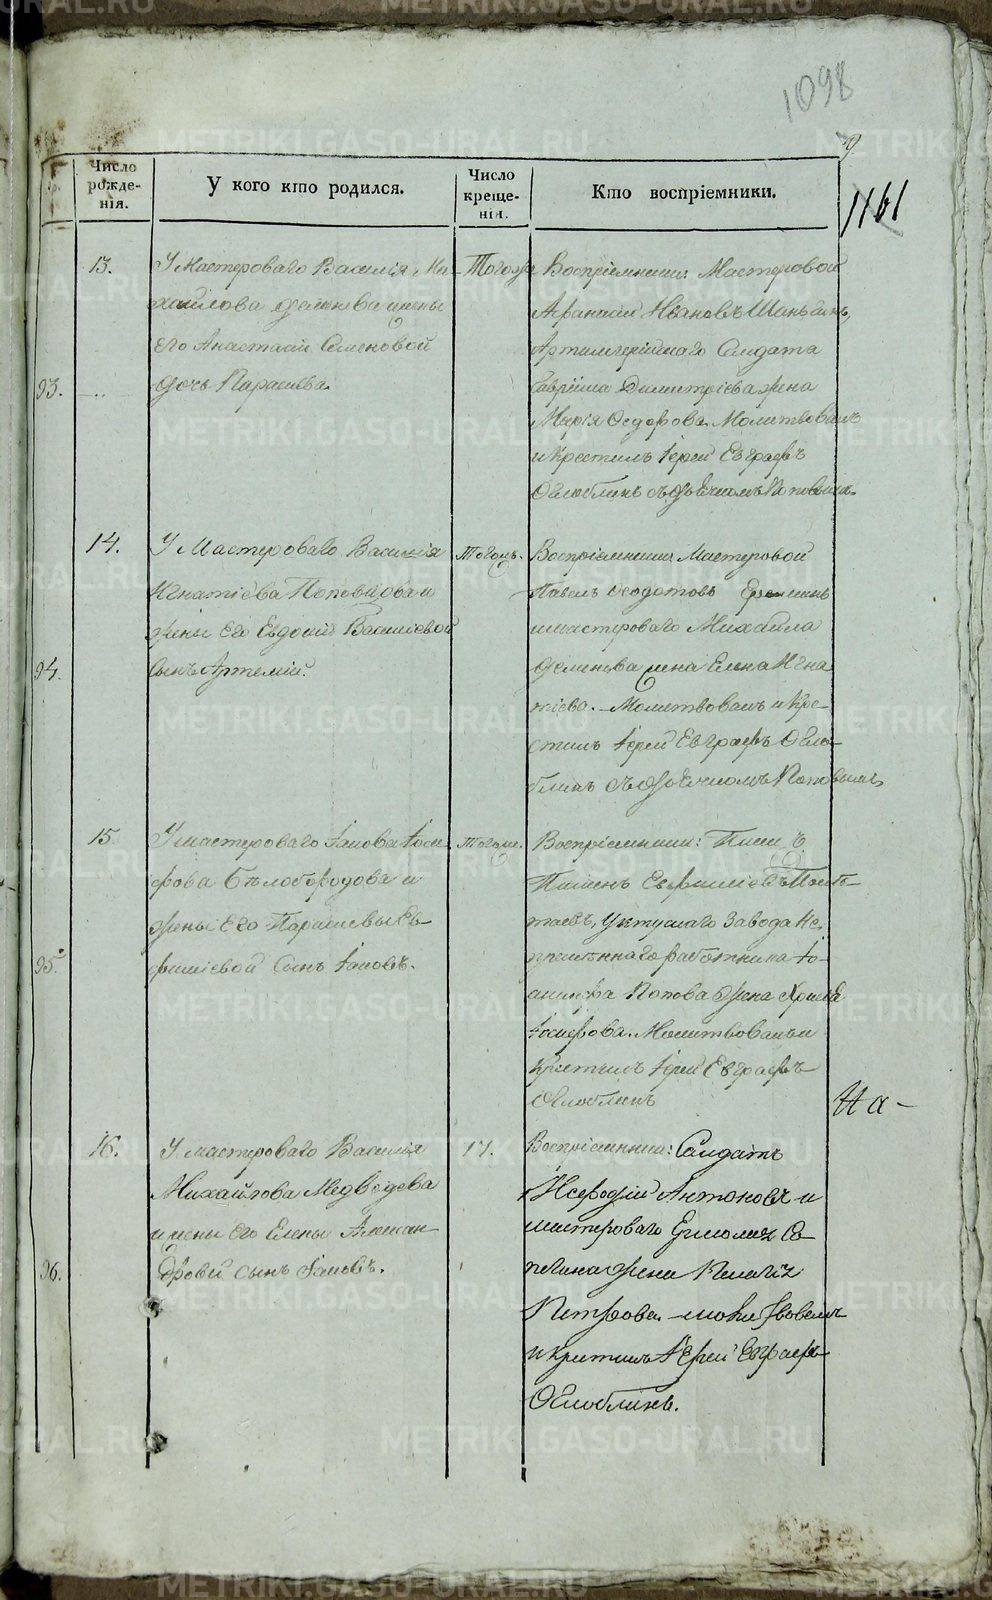 1098
9
1161
Число рожде-нія.
У кого кто родился.
Число креще-нія.
Кто воспріемники.
93.
13.
У Мастероваго Василія Ми-
хайлова Деменева и жены
его Анастасіи Семеновой
дочь Парасшва.
Тогожъ
Воспріемники: Мастеровой
Афанасій Ивановъ Шаньгинъ,
Артиллерійскаго Солдата
Гавріила Димитріева жена
Марія Ѳедорова. Молитвовалъ
и крестилъ Іерей Евграфъ
Оглоблинъ съ дьячкомъ Поповымъ.
94.
14.
У Мастероваго Василія
Игнатіева Поповцова и
жены его Евдокіи Васильевой
сынъ Артемій.
Тогожъ.
Воспріемники Мастеровой
Павелъ Ѳеодотовъ
и мастероваго Михаила
Деменева жена Елена Игна-
тіева. Молитвовалъ и кре-
стилъ Іерей Евграфъ Огло-
блинъ съ дьячкомъ Поповымъ
95.
15
У мастероваго Іакова Іоси-
фова Бѣлобородова и
жены его Параскевы Ев-
фиміевой сынъ Іаковъ.
Тогожъ.
Воспріемники:
Евфимій
Уктускаго Завода Не-
премѣннаго работника Іо-
Попова жена
Іосифова. Молитвовалъ и
крестилъ Іерей Евграфъ
Оглоблинъ
На-
96.
16.
У мастероваго Василія
Михайлова Медвѣдева
и жены его Елены Алексан-
дровой сынъ Іаковъ.
17.
Воспріемники: Солдатъ
Антоновъ и
мастероваго Ермолая
жена Пелагія
Петрова. молитвовалъ
и крестилъ Іерей Евграфъ
Оглоблинъ.
METRIKI.GASO-URAL.RU